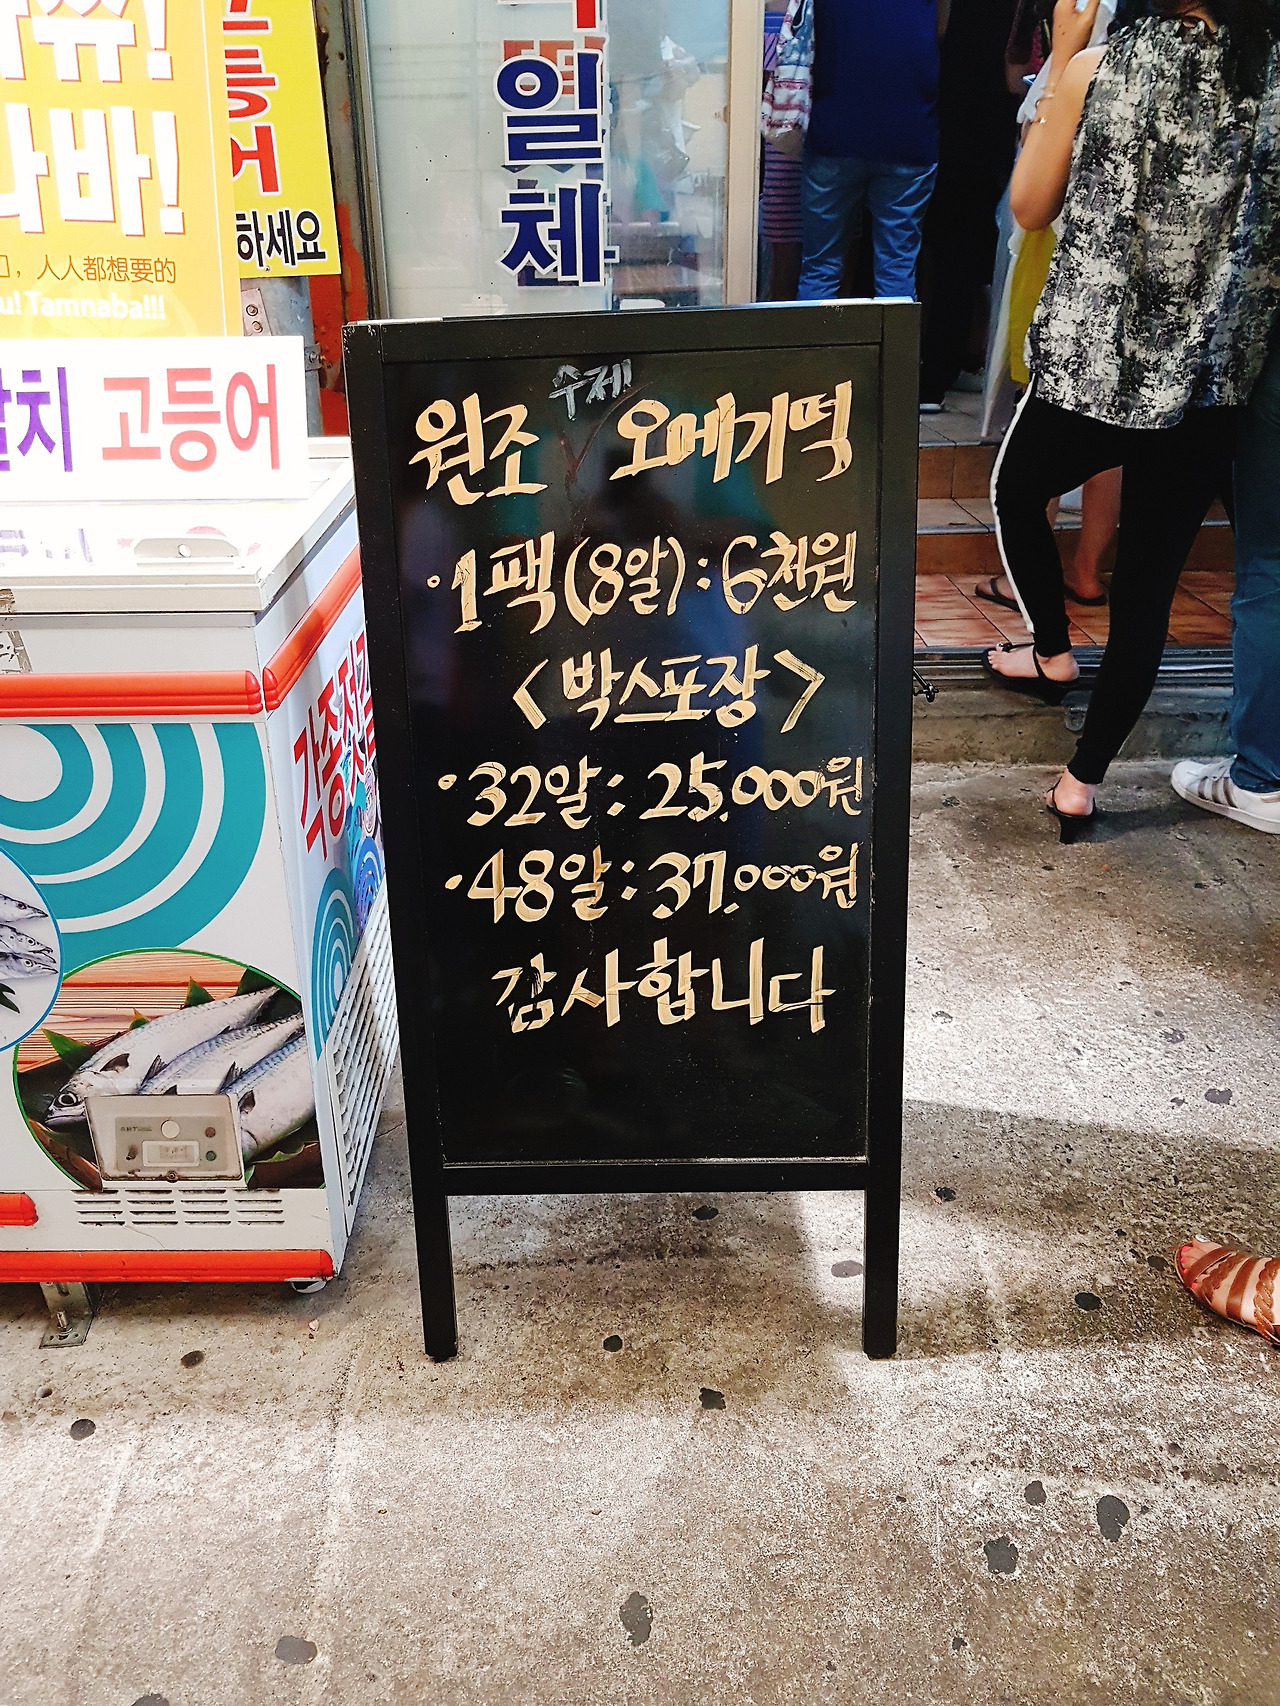 바!
人人都想要的
Tamnaba!!!
고등어
하세요
치 고등어
일체
수제
원조 오메기떡
·1팩(8알):6천원
<박스포장>
·32알: 25.000원
·48알: 37.000원
감사합니다